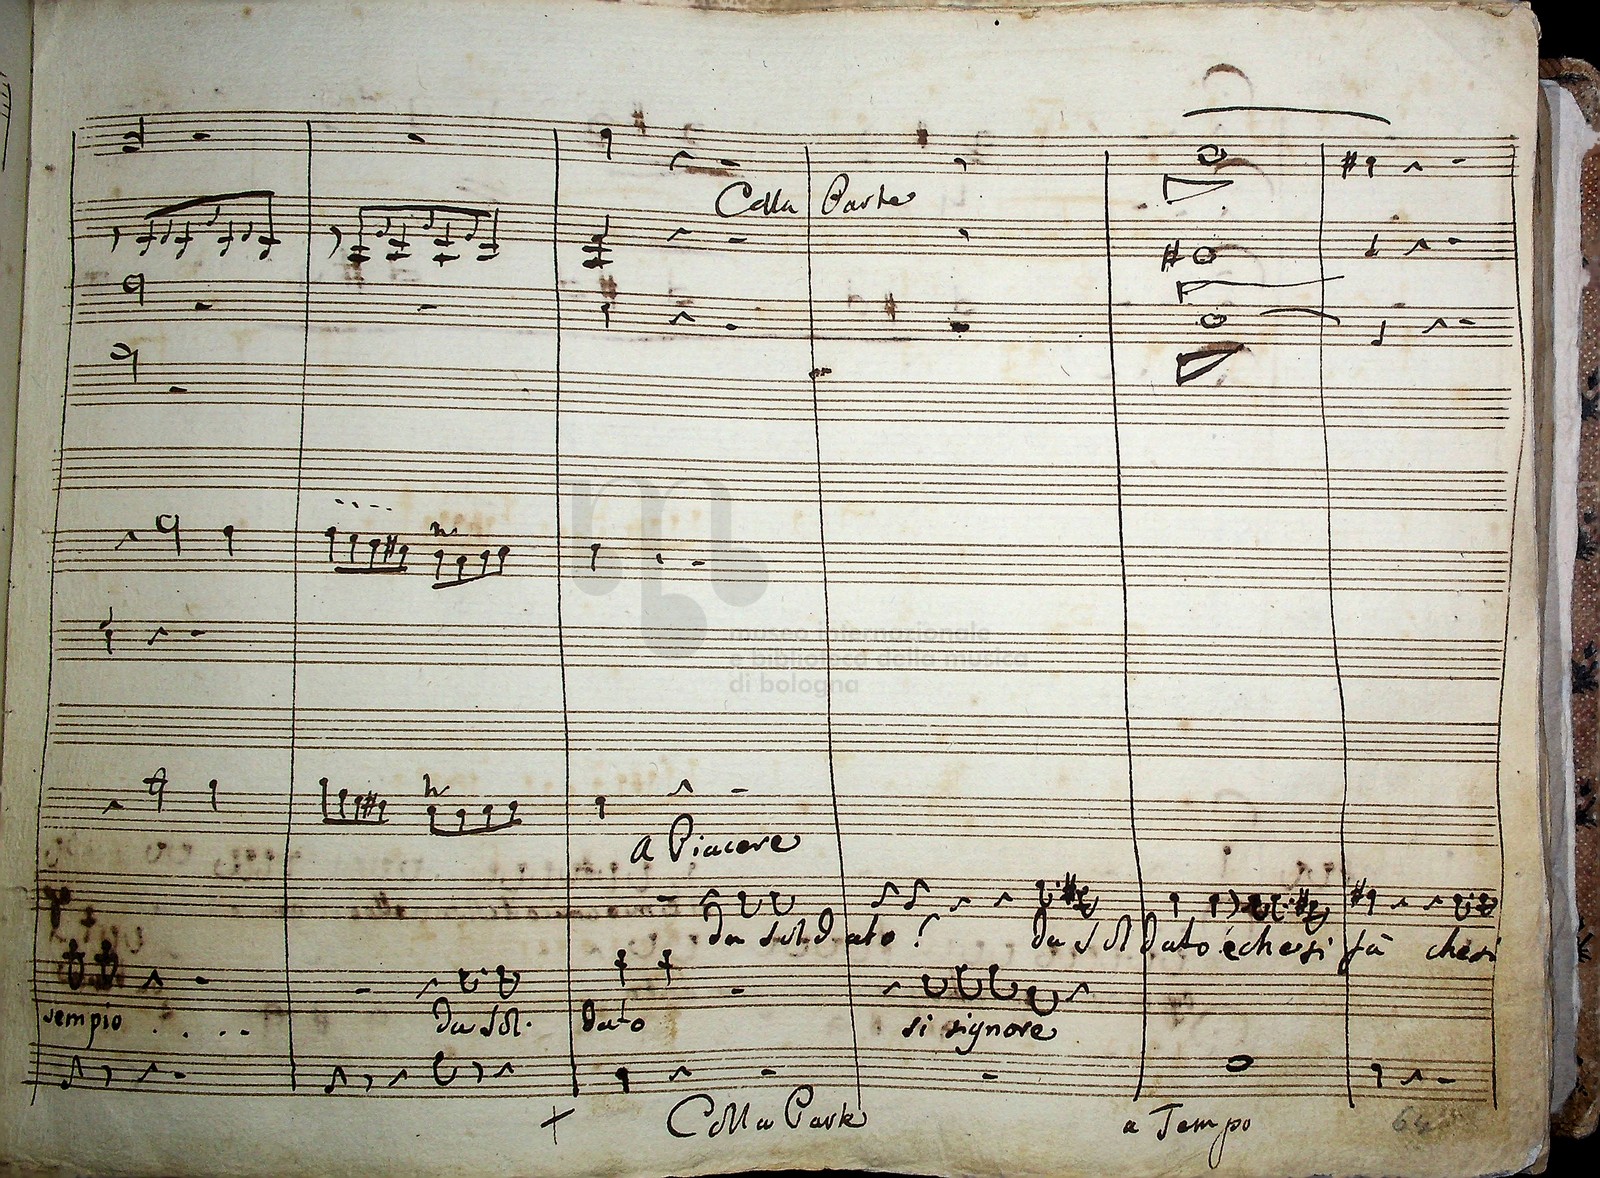 Colla Parte
museo internazionale
e biblioteca della musica
di bologna
A Piacere
da soldato? da soldato è che si fà che si
sempio .... da sol. dato si signore
Colla Parte a Tempo
64